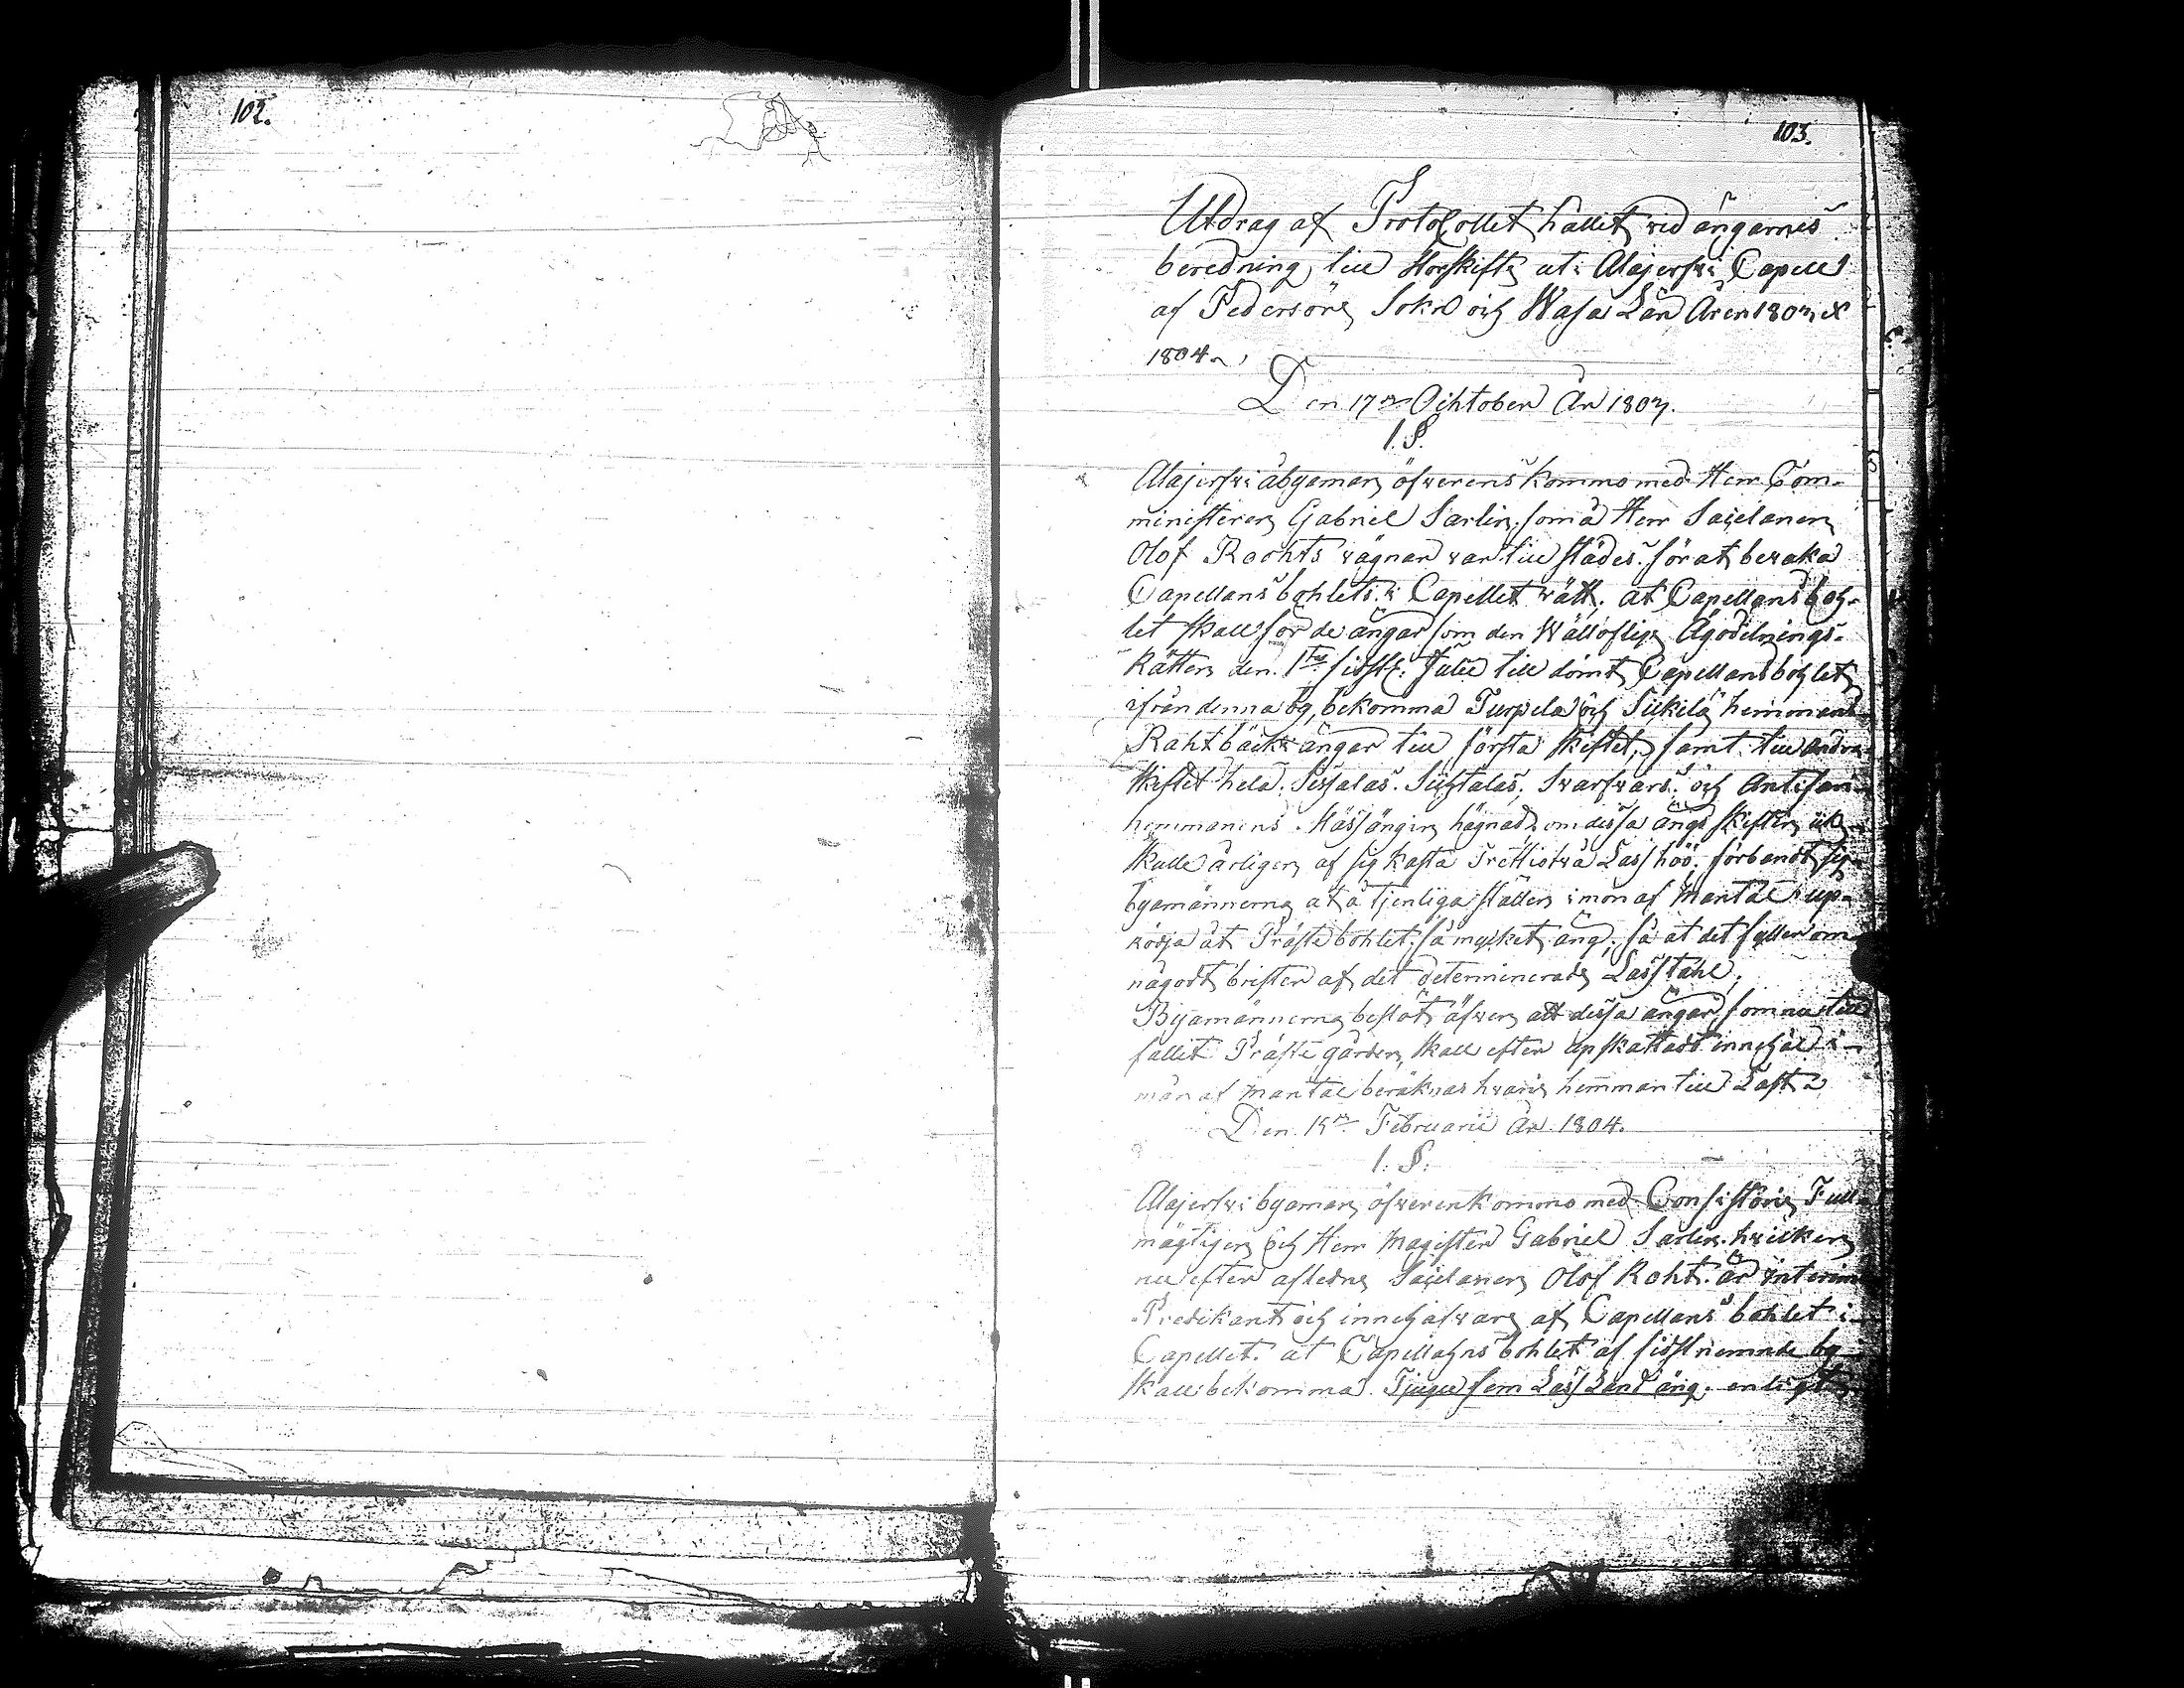 102.
103.
Utdrag af Protocollet hållet vid ängarnes
beredning till Storskifte uti Alajerfvi Capell
af Pedersöre Sokn och Wasa Län Åren 1803 &
1804.
Den 17de Ochtober År 1803.
1. §.
Alajerfvi åbyamän öfverens kommo med Herr Com-
ministeren Gabriel Sarlin, som å Herr Sacelanen
Olof Rachts vägnar var till städes för at bevaka
Capellans bohlets i Capellet rätt; at Capellansboh-
let skall för de ängar som den Wällofliga Ägodelnings-
Rätten den 1 sidstl. Julii till dömt Capellansbohlet
ifrån denna by, bekomma Turpela och Sickilä hemmans
Rahtbäck ängar till första skiftet, samt till andra
skiftet hela hemmanens
hägnad, om dessa ängs skiften ick
skulle årligen af sig kasta Trettiotvå Lass höö, förbandt sig
byamännerna at å tjenliga ställen i mon af Mantal up-
rödja åt Präste bohlet, så mycket äng, så at det fyller om
någodt brister af det determinerade Lasstahl;
Byamännerna beslöt äfven att dessa ängar som nu till
fallit Präste gården, skall efter upskattadt innehåll i
mån af mantal beräknas hvarje hemman till Last
Den 15de Februarii År 1804.
1. §.
Alajerfvi byamän öfverenkommo med Consistorii Full-
mägtigen och Herr Magister Gabriel Sarlin, hvilken
nu efter afledne Sacelanen Olof Raht är interims
Predikant och innehafvare af Capellans bohlet i
Capellet, at Capellans bohlet af sidstnemnde by
skall bekomma Tjugu fem Lass Land äng, enligt